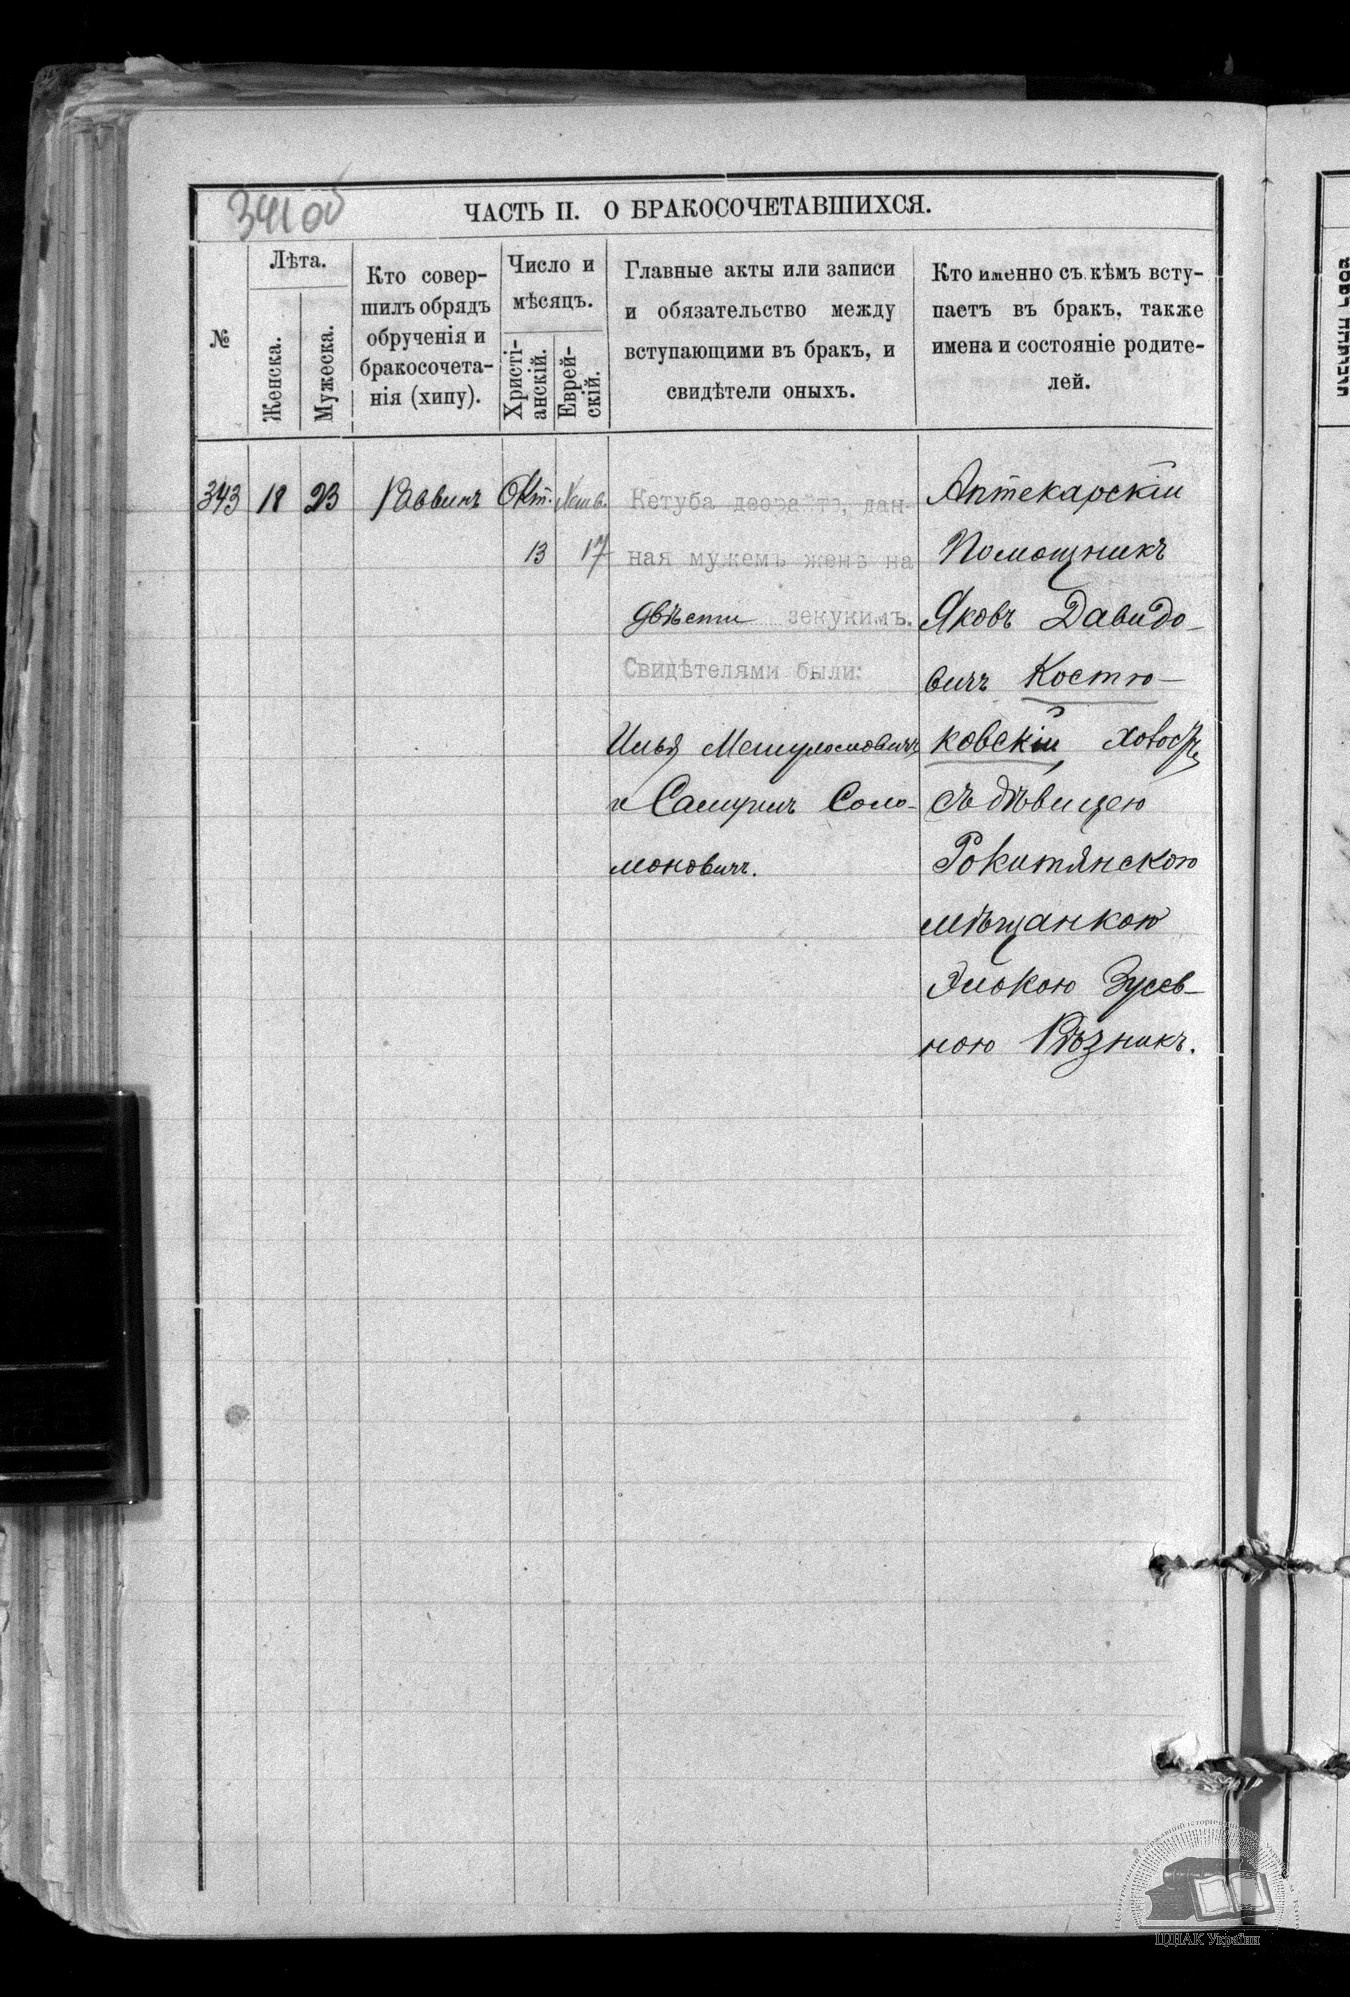 341 об
ЧАСТЬ II. О БРАКОСОЧЕТАВШИХСЯ.
№
Лѣта.
Женска.
Мужеска.
Кто совер-
шилъ обрядъ
обрученія и
бракосочета-
нія (хипу).
Число и
мѣсяцъ.
Христі-
анскій.
Еврей-
скій.
Главные акты или записи
и обязательство между
вступающими въ бракъ, и
свидѣтели оныхъ.
Кто именно съ кѣмъ всту-
паетъ въ бракъ, также
имена и состояніе родите-
лей.
343 18 23 Раввинъ Окт. Хешв.
13 17
Кетуба деорайта, дан-
ная мужемъ женѣ на
двѣсти зекукимъ.
Свидѣтелями были:
Илья Мешулямовичъ
и Самуилъ Соло-
моновичъ.
Аптекарскій
Помощникъ
Яковъ Давидо-
вичъ Костю-
ковскій холост
съ дѣвицею
Рокитянскою
мѣщанкою
Элькою Зусев-
ною Рѣзникъ.
ЦДІАК України